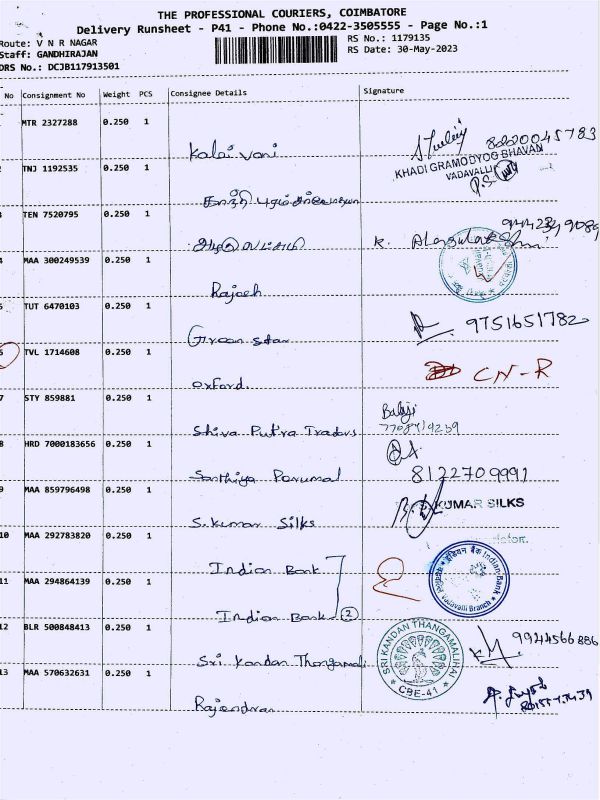 THE PROFESSIONAL COURIERS, COIMBATORE
Delivery Runsheet - P41 - Phone No.:0422-3505555 - Page No.:1
Route: V N R NAGAR
RS No.: 1179135
Staff: GANDHIRAJAN
RS Date: 30-May-2023
DRS No.: DCJB117913501
No Consignment No Weight PCS Consignee Details Signature
MTR 2327288 0.250 1
Kalai vani 8220045783
KHADI GRAMODYOG BHAVAN
VADAVALLI
2 TNJ 1192535 0.250 1
3 TEN 7520795 0.250 1
K.
4 MAA 300249539 0.250 1
Rajesh
5 TUT 6470103 0.250 1
Green star 9751651782
6 TVL 1714608 0.250 1
oxford. CN-R
7 STY 859881 0.250 1
Balaji
Shiva Putra Traders
8 HRD 7000183656 0.250 1
Santhiya Perumal 8122709991
9 MAA 859796498 0.250 1
KUMAR SILKS
S. Kumar Silks
10 MAA 292783820 0.250 1
Indian Bank
इंडियन बैंक Indian Bank
Vadavalli Branch
11 MAA 294864139 0.250 1
Indian Bank 2
12 BLR 500848413 0.250 1
SRI KANDAN THANGAMALIHAI
CBE-41
Sri Kandan Thangamali 9944566886
13 MAA 570632631 0.250 1
Rajendran